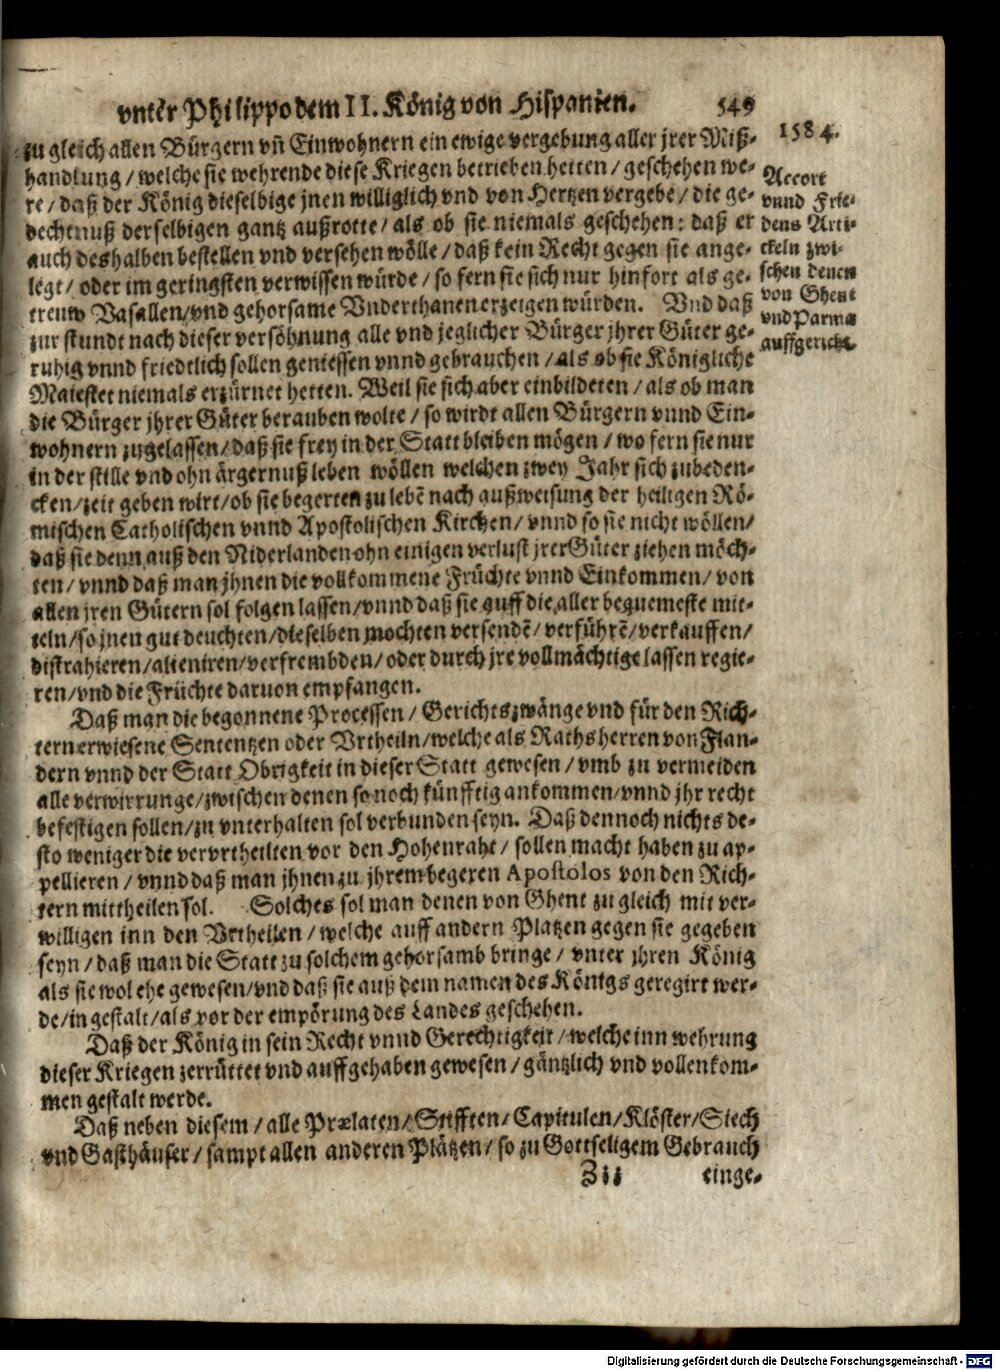 vnter Philippo dem II. König von Hispanien. 549
1584.
zu gleich allen Bürgern vñ Einwohnern ein ewige vergebung aller jrer Miß-
handlung / welche sie wehrende diese Kriegen betrieben hetten / geschehen we-
re / daß der König dieselbige jnen williglich vnd von Hertzen vergebe / die ge-
dechtnuß derselbigen gantz außrotte / als ob sie niemals geschehen: daß er
auch deshalben bestellen vnd versehen wölle / daß kein Recht gegen sie ange-
legt / oder im geringsten verwissen würde / so fern sie sich nur hinfort als ge-
treuw Vasallen / vnd gehorsame Vnderthanen erzeigen würden. Vnd daß
zur stundt nach dieser versöhnung alle vnd jeglicher Bürger jhrer Güter ge-
ruhig vnnd friedtlich sollen geniessen vnnd gebrauchen / als ob sie Königliche
Maiestet niemals erzürnet hetten. Weil sie sich aber einbildeten / als ob man
die Bürger jhrer Güter berauben wolte / so wirdt allen Bürgern vnnd Ein-
wohnern zugelassen / daß sie frey in der Statt bleiben mögen / wo fern sie nur
in der stille vnd ohn ärgernuß leben wöllen welchen zwey Jahr sich zubeden-
cken / zeit geben wirt / ob sie begerten zu lebē nach außweisung der heiligen Rö-
mischen Catholischen vnnd Apostolischen Kirchen / vnnd so sie nicht wöllen /
daß sie denn auß den Niderlanden ohn einigen verlust jrer Güter ziehen möch-
ten / vnnd daß man jhnen die vollkommene Früchte vnnd Einkommen / von
allen jren Gütern sol folgen lassen / vnnd daß sie auff die aller bequemeste mit-
teln / so jnen gut deuchten / dieselben mochten versendē / verführē / verkauffen /
distrahieren / alieniren / verfrembden / oder durch jre vollmächtige lassen regie-
ren / vnd die Früchte daruon empfangen.
Daß man die begonnene Processen / Gerichtszwänge vnd für den Rich-
tern erwiesene Sententzen oder Vrtheiln / welche als Rathsherren von Flan-
dern vnnd der Statt Obrigkeit in dieser Statt gewesen / vmb zu vermeiden
alle verwirrunge / zwischen denen so noch künfftig ankommen / vnnd jhr recht
befestigen sollen / zu vnterhalten sol verbunden seyn. Daß dennoch nichts de-
sto weniger die vervrtheilten vor den Hohenraht / sollen macht haben zu ap-
pellieren / vnnd daß man jhnen zu jhrem begeren Apostolos von den Rich-
tern mittheilen sol. Solches sol man denen von Ghent zu gleich mit ver-
willigen inn den Vrtheilen / welche auff andern Platzen gegen sie gegeben
seyn / daß man die Statt zu solchem gehorsamb bringe / vnter jhren König
als sie wol ehe gewesen / vnd daß sie auß dem namen des Königs geregirt wer-
de / in gestalt / als vor der empörung des Landes geschehen.
Daß der König in sein Recht vnnd Gerechtigkeit / welche inn wehrung
dieser Kriegen zerrüttet vnd auffgehaben gewesen / gäntzlich vnd vollenkom-
men gestalt werde.
Daß neben diesem / alle Prælaten / Stifften / Capitulen / Klöster / Siech
vnd Gasthäuser / sampt allen anderen Plätzen / so zu Gottseligem Gebrauch
Zii einge-
Accort
vnnd Frie-
dens Arti-
ckeln zwi-
schen denen
von Ghent
vnd Parma
auffgericht.
Digitalisierung gefördert durch die Deutsche Forschungsgemeinschaft - DFG